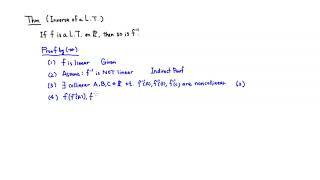 Thm (Inverse of a L.T.)
If f is a L.T. on ℝ², then so is f⁻¹
Proof by (→←)
(1) f is linear Given
(2) Assume f⁻¹ is NOT linear Indirect Proof
(3) ∃ collinear A, B, C ∈ ℝ² s.t. f⁻¹(A), f⁻¹(B), f⁻¹(C) are noncollinear. (2)
(4) f(f⁻¹(A)), f⁻